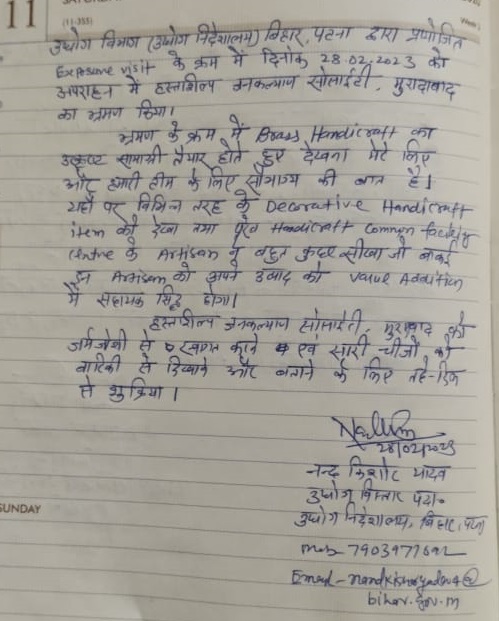 11
(11-355)
उद्योग विभाग (उद्योग निदेशालय) बिहार, पटना द्वारा प्रयोजित
Exposure visit के क्रम में दिनांक 28.02.2023 को
अपराहन में हस्तशिल्प जनकल्याण सोसाईटी, मुरादाबाद
का भ्रमण किया।
भ्रमण के क्रम में Brass Handicraft का
उत्कृष्ट सामाग्री तैयार होते हुए देखना मेरे लिए
और हमारी टीम के लिए सौभाग्य की बात है।
यहाँ पर विभिन्न तरह के Decorative Handicraft
item को देखा तथा Handicraft Common facility
Centre के Artisan से बहुत कुछ सीखा जो
Artisan को अपने उत्पाद को Value Addition
में सहायक सिद्ध होगा।
हस्तशिल्प जनकल्याण सोसाईटी, मुरादाबाद को
गर्मजोशी से स्वागत करने एवं सारी चीजों को
बारिकी से दिखाने और बताने के लिए तहे-दिल
से शुक्रिया।
28/02/2023
नन्द किशोर यादव
उद्योग विस्तार पदा०
उद्योग निदेशालय, बिहार, पटना
SUNDAY
Mob- 7903977692
Email- nandkishoryadav4@
bihar.gov.in